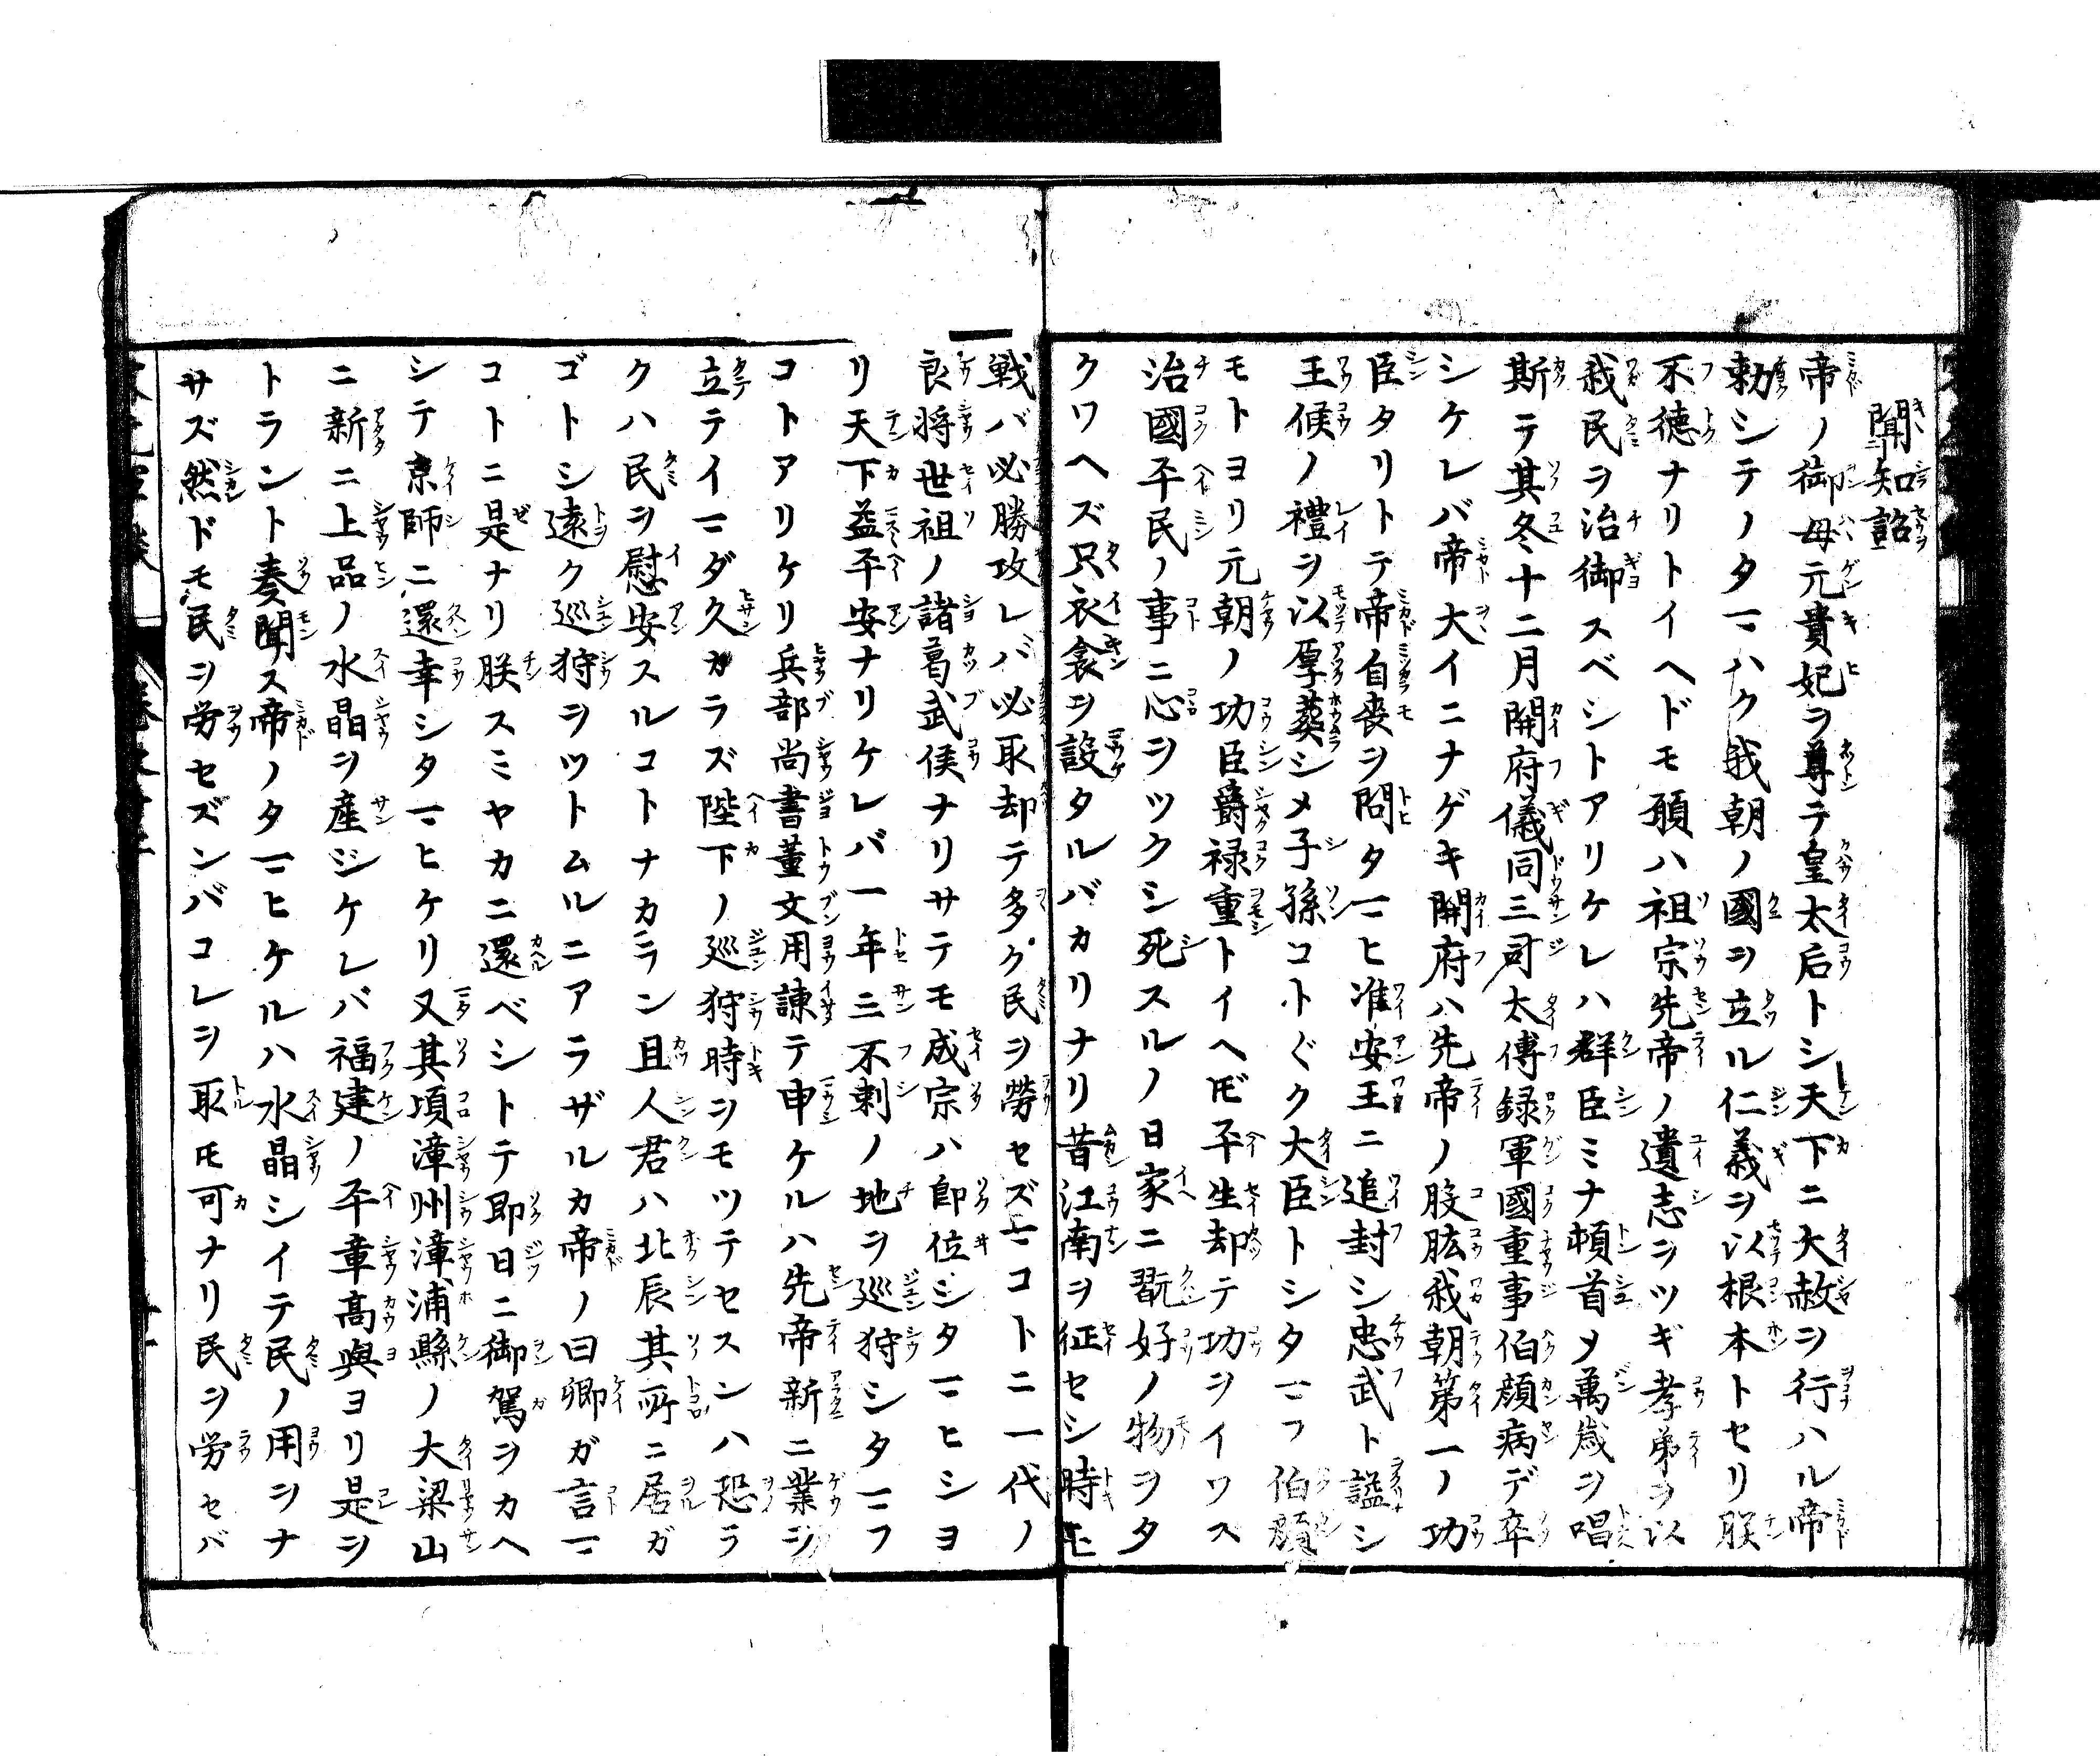 聞知詔
帝ノ御母元貴妃ヲ尊テ皇太后トシ天下ニ大赦ヲ行ハル帝
勅シテノタマハク我朝ノ國ヲ立ル仁義ヲ以根本トセリ朕
不徳ナリトイヘドモ願ハ祖宗先帝ノ遺志ヲツギ孝弟ヲ以
我民ヲ治御スベシトアリケレハ群臣ミナ頓首メ萬歳ヲ唱
斯テ其冬十二月開府儀同三司太傅録軍國重事伯顔病デ卒
シケレバ帝大イニナゲキ開府ハ先帝ノ股肱我朝第一ノ功
臣タリトテ帝自喪ヲ問タマヒ准安王ニ追封シ忠武ト諡シ
王候ノ禮ヲ以厚葬シメ子孫コトゞク大臣トシタマフ伯顔
モトヨリ元朝ノ功臣爵禄重トイヘドモ平生却テ功ヲイワス
治國平民ノ事ニ心ヲツクシ死スルノ日家ニ翫好ノ物ヲタ
クワヘズ只衣衾ヲ設タルバカリナリ昔江南ヲ征セシ時モ
戦バ必勝攻レバ必取却テ多ク民ヲ勞セズマコトニ一代ノ
良将世祖ノ諸葛武侯ナリサテモ成宗ハ即位シタマヒシヨ
リ天下益平安ナリケレバ一年三不剌ノ地ヲ巡狩シタマフ
コトアリケリ兵部尚書董文用諌テ申ケルハ先帝新ニ業ヲ
立テイマダ久カラズ陛下ノ巡狩時ヲモツテセスンハ恐ラ
クハ民ヲ慰安スルコトナカラン且人君ハ北辰其所ニ居ガ
ゴトシ遠ク巡狩ヲツトムルニアラザルカ帝ノ曰卿ガ言マ
コトニ是ナリ朕スミヤカニ還ベシトテ即日ニ御駕ヲカヘ
シテ京師ニ還幸シタマヒケリ又其頃漳州漳浦縣ノ大梁山
ニ新ニ上品ノ水晶ヲ産ジケレバ福建ノ平章高興ヨリ是ヲ
トラント奏聞ス帝ノタマヒケルハ水晶シイテ民ノ用ヲナ
サズ然ドモ民ヲ労セズンバコレヲ取モ可ナリ民ヲ労セバ